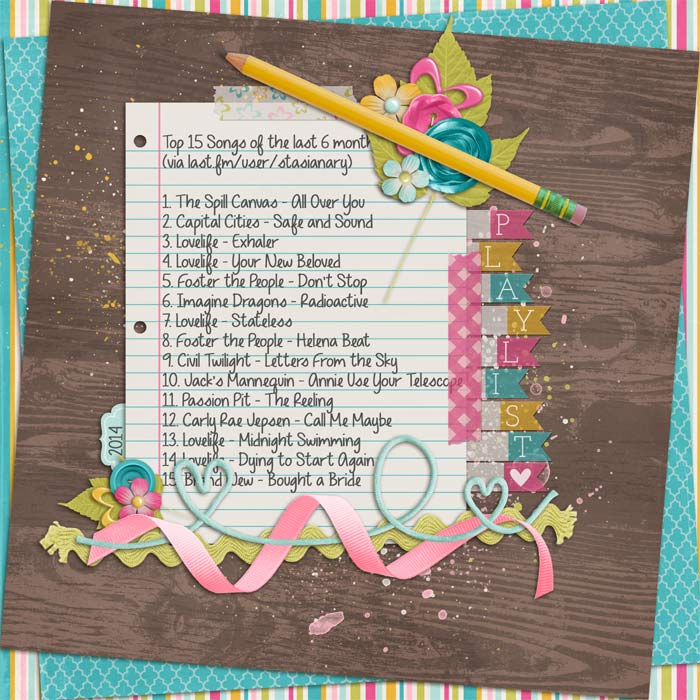 Top 15 Songs of the last 6 month
(via last.fm/user/stasianary)
1. The Spill Canvas - All Over You
2. Capital Cities - Safe and Sound
3. Lovelife - Exhaler
4. Lovelife - Your New Beloved
5. Foster the People - Don't Stop
6. Imagine Dragons - Radioactive
7. Lovelife - Stateless
8. Foster the People - Helena Beat
9. Civil Twilight - Letters From the Sky
10. Jack's Mannequin - Annie Use Your Telescope
11. Passion Pit - The Reeling
12. Carly Rae Jepsen - Call Me Maybe
13. Lovelife - Midnight Swimming
14. Lovelife - Dying to Start Again
15. Brand New - Bought a Bride
PLAYLIST
2014